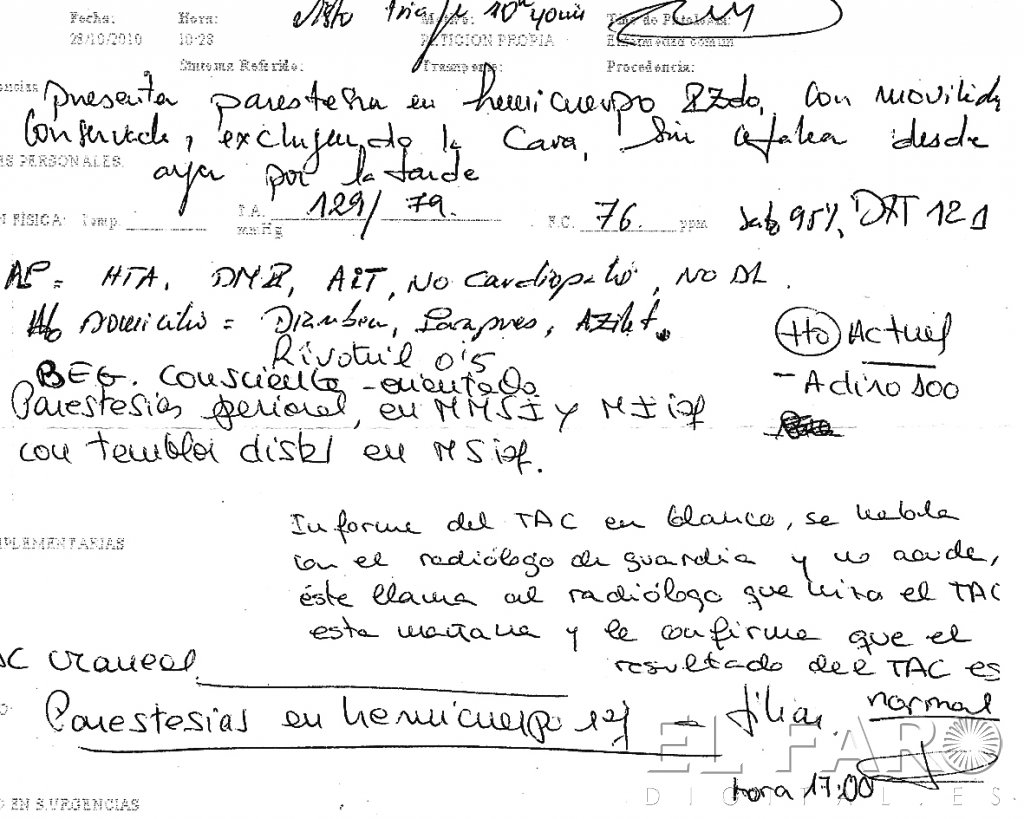 Fecha: Hora: Visto triage 10
28/10/2010 10:28 PETICION PROPIA Enfermedad comun
Sintoma Referido: Transporte: Procedencia:
presenta parestesia en hemicuerpo IZdo, con movilida
conservada, excluyendo la cara, sin cefalea desde
S PERSONALES: ayer por la tarde
FÍSICA: Temp. T.A. mmHg 129/79. F.C. 76. ppm Sat 95%, DXT 121
AP = HTA, DM II, AIT, No cardiopatía, No DL.
tto Domicilio = Diamben, Zarapres, Azilet.
Rivotril 0'5
tto Actual
BEG. Consciente - orientado
- Adiro 300
Parestesias perioral, en MMSI y MI izq
con temblor distal en MS izq.
Informe del TAC en blanco, se habla
MPLEMENTARIAS
con el radiólogo de guardia y no acude,
éste llama al radiólogo que mira el TAC
esta mañana y le confirma que el
AC craneal
resultado del TAC es
normal
Parestesias en hemicuerpo izq - filiar.
EL FARO
DIGITAL.ES
hora 17:00
EN S.URGENCIAS